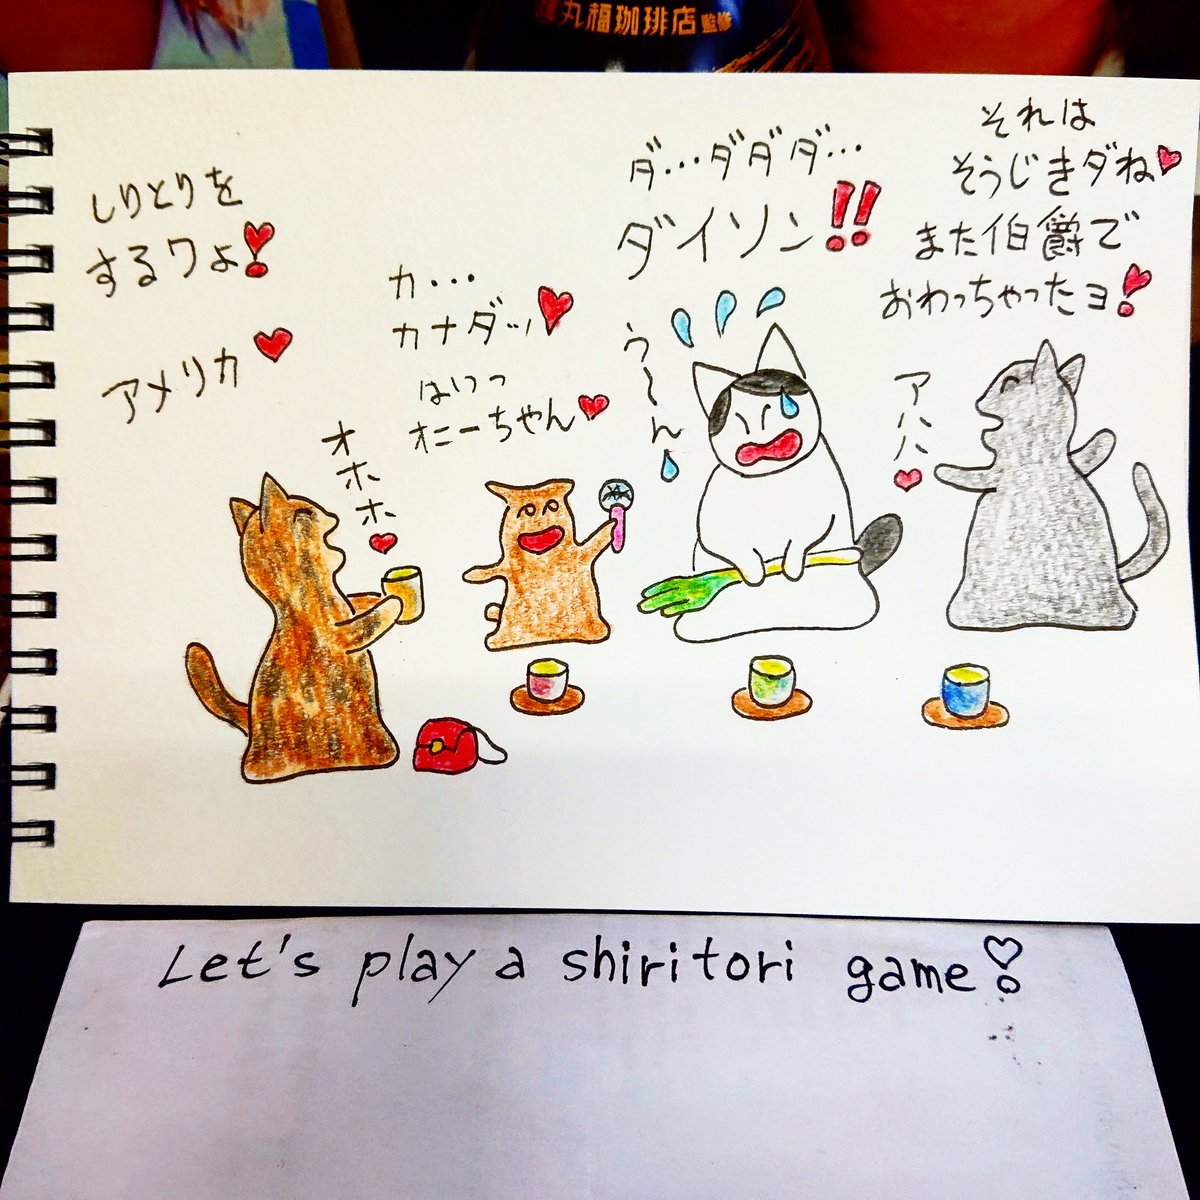 丸福珈琲店監修
しりとりを
するワよ
アメリカ
オホホ
カ…
カナダッ
はいっ
オニーちゃん
ダ…ダダダ…
ダイソン!!
う〜ん
それは
そうじきダね
また伯爵で
おわっちゃったヨ
アハハ
Let's play a shiritori game